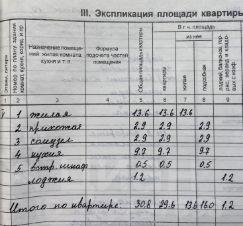 III. Экспликация площади квартиры
Назначение помещений: жилая комната, кухня и т.п.
Формула подсчета частей помещения
Общая площадь квартиры
В т.ч. площадь
из нее
жилая
подсобная
1 2 3 4 5 6 7 8 9
1 жилая 13.6 13.6 13.6
2 прихожая 2.9 2.9 2.9
3 санузел 2.9 2.9 2.9
4 кухня 9.7 9.7 9.7
5 встр. шкаф 0.5 0.5 0.5
лоджия 1.2 1.2
Итого по квартире: 30.8 29.6 13.6 16.0 1.2